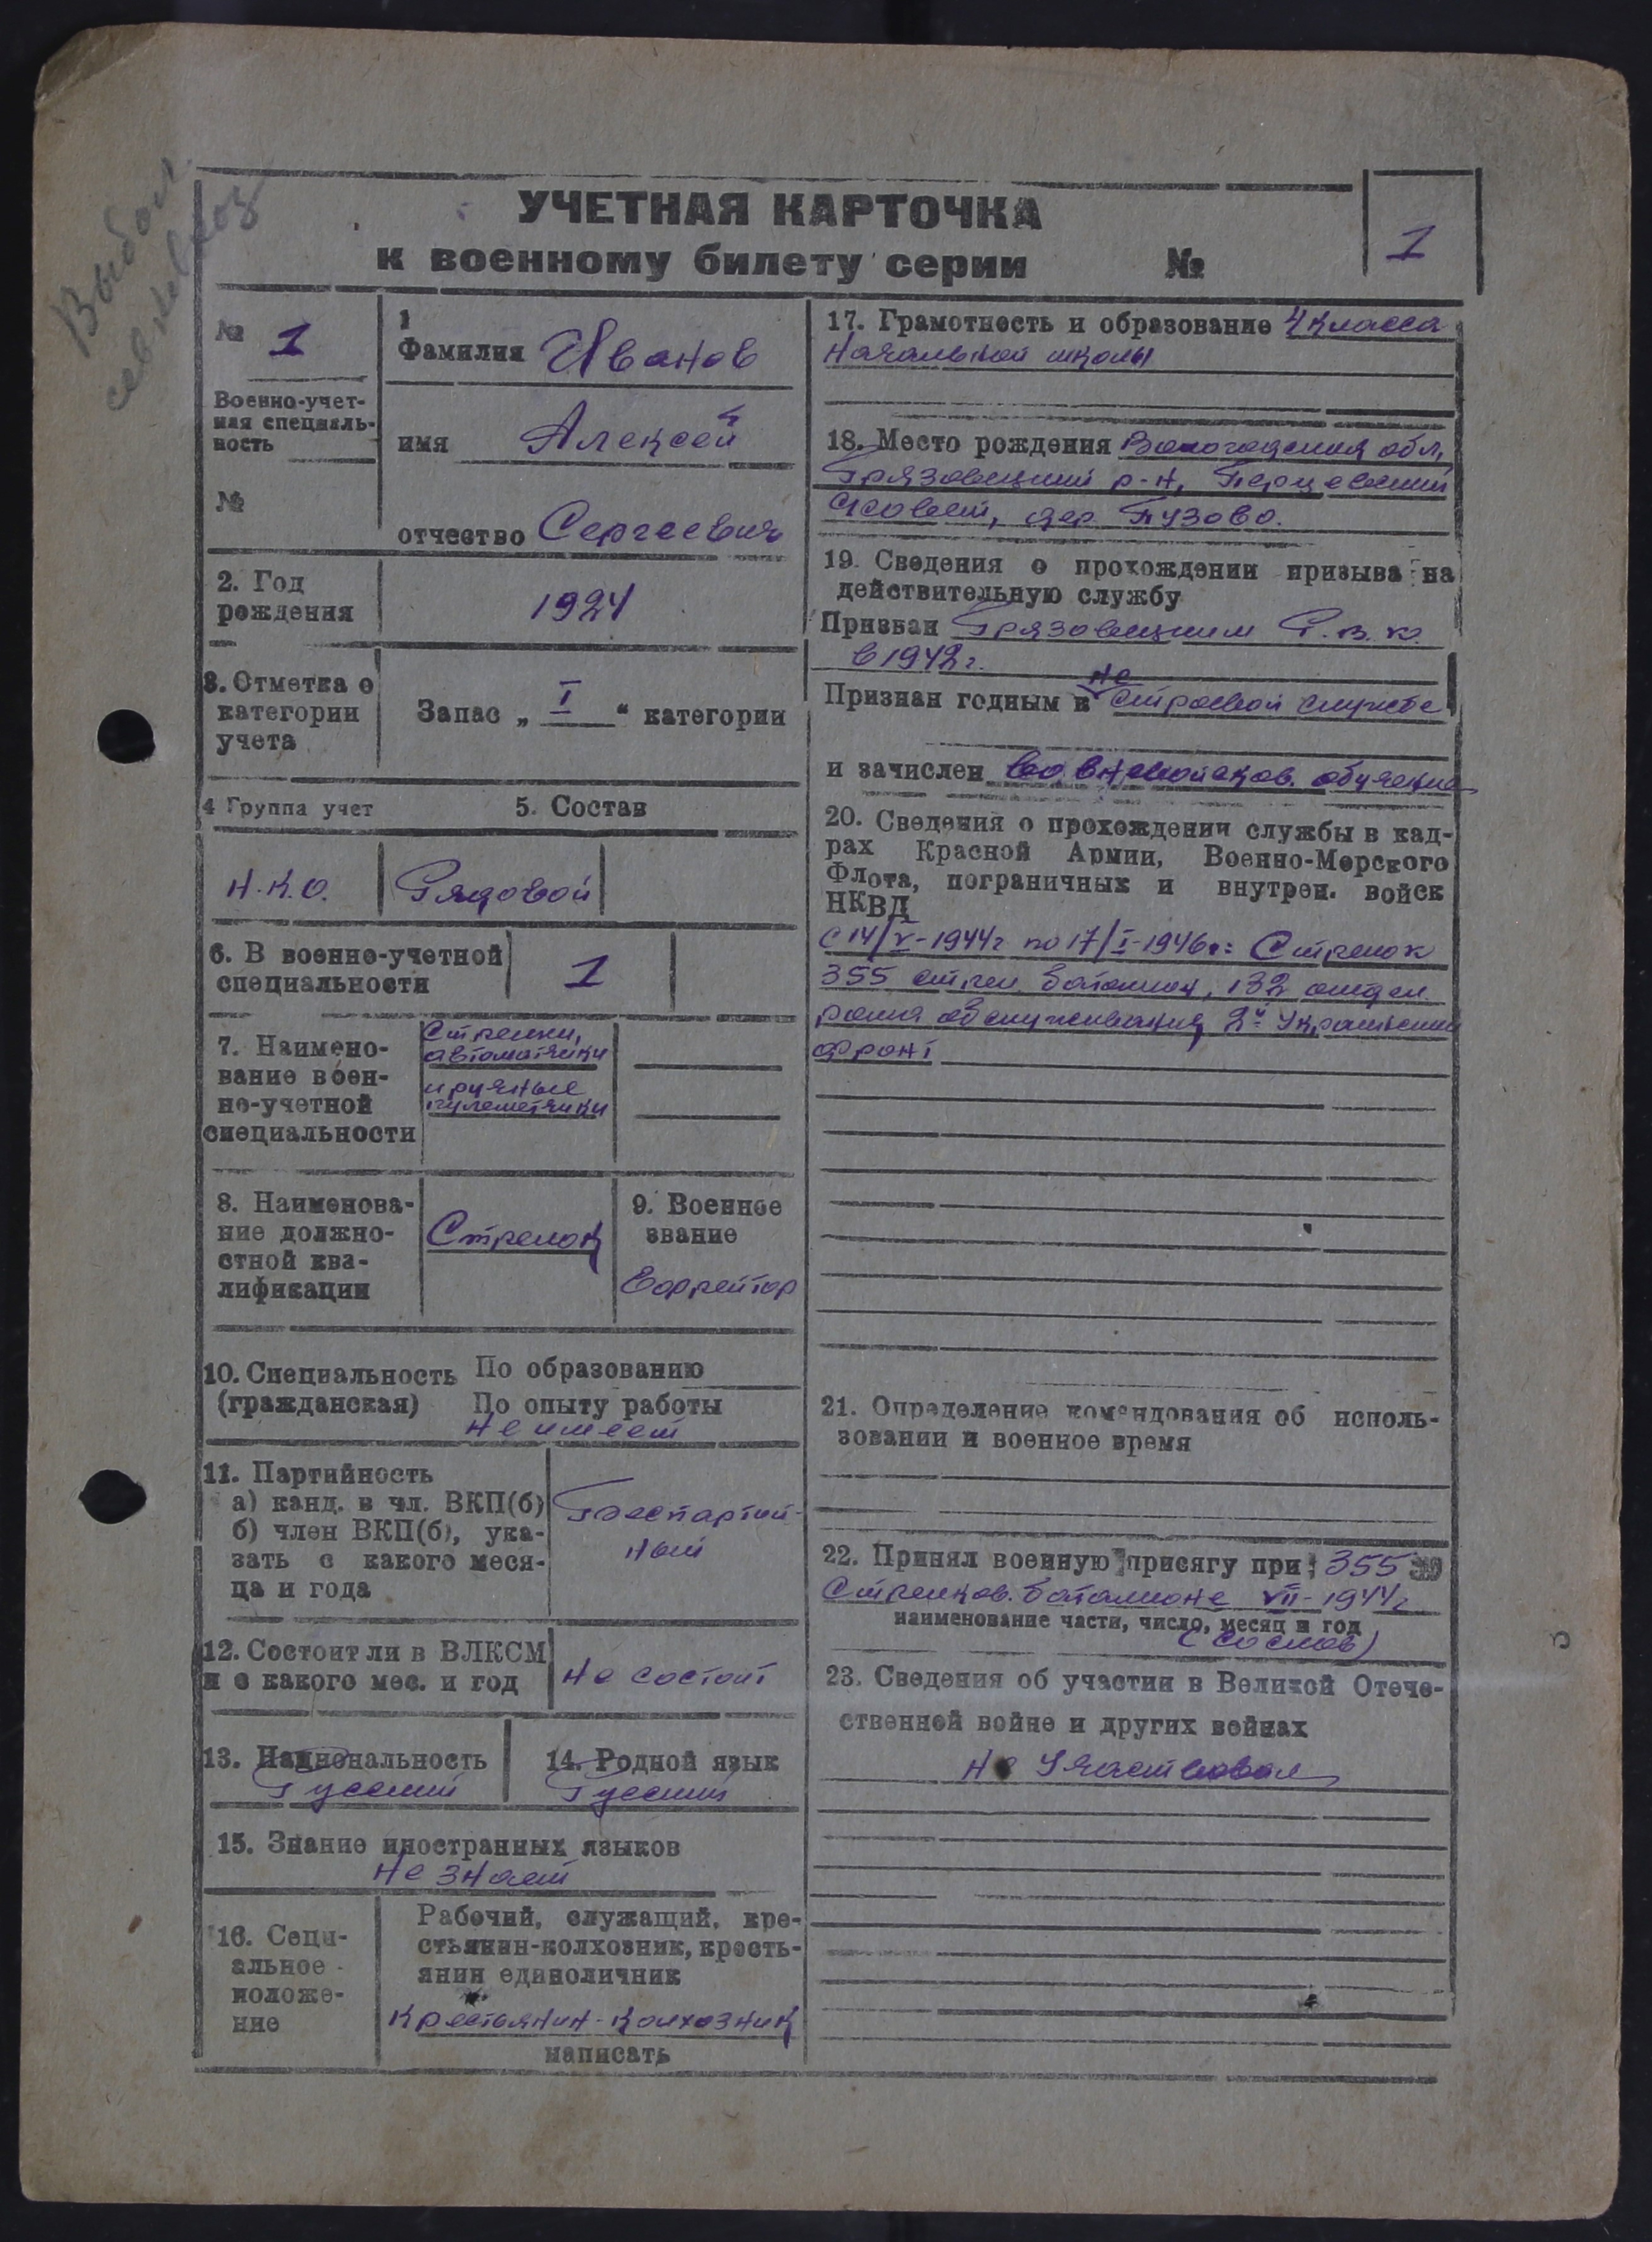 Выбыл
УЧЕТНАЯ КАРТОЧКА
к военному билету серии №
1
№ 1
Военно-учет-
ная специаль-
ность
№
1
Фамилия Иванов
имя Алексей
отчество Сергеевич
2. Год
рождения
1924
3. Отметка о
категории
учета
Запас „ I “ категории
4 Группа учет
5. Состав
Н.К.О.
Рядовой
6. В военно-учетной
специальности
1
7. Наимено-
вание воен-
но-учетной
специальности
Стрелки,
автоматчики
и ручные
пулеметчики
8. Наименова-
ние должно-
стной ква-
лификации
Стрелок
9. Военное
звание
Ефрейтор
10. Специальность
(гражданская)
По образованию
По опыту работы
не имеет
11. Партийность
а) канд. в чл. ВКП(б)
б) член ВКП(б), ука-
зать с какого меся-
ца и года
Беспартий-
ный
12. Состоит ли в ВЛКСМ
и с какого мес. и год
не состоит
13. Национальность
Русский
14. Родной язык
Русский
15. Знание иностранных языков
не знает
16. Соци-
альное
положе-
ние
Рабочий, служащий, кре-
стьянин-колхозник, кресть-
янин единоличник
крестьянин-колхозник
написать
17. Грамотность и образование 4 класса
начальной школы
18. Место рождения Вологодская обл,
Грязовецкий р-н, Перцевский
с/совет, дер. Пузово.
19. Сведения о прохождении призыва на
действительную службу
Призван Грязовецким Р.В.К.
в 1942г.
Признан годным к не строевой службе
и зачислен во обучение
20. Сведения о прохождении службы в кад-
рах Красной Армии, Военно-Морского
Флота, пограничных и внутрен. войск
НКВД
с 14/V-1944г по 17/I-1946г: Стрелок
355 стрел. батальон, 132 отдел.
рота обслуживания, 2й Украинский
фронт
21. Определение командования об исполь-
зовании в военное время
22. Принял военную присягу при: 355
Стрелков. батальоне VII-1944г
наименование части, число, месяц и год
(со слов)
23. Сведения об участии в Великой Отече-
ственной войне и других войнах
не участвовал